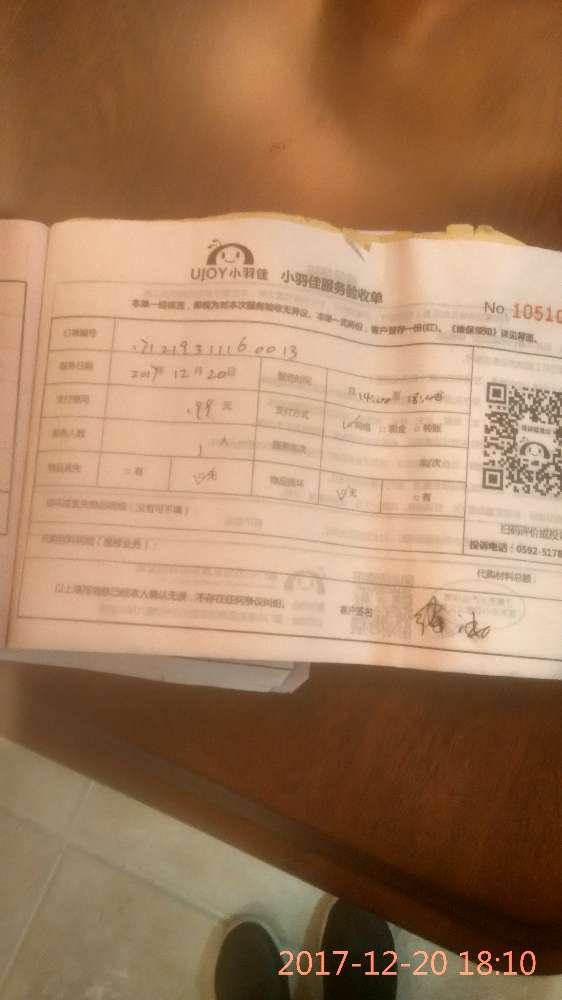 UJOY小羽佳 小羽佳服务验收单
No. 10510
本单一经填签，即视为对本次服务验收无异议。本单一式两份，客户留存一份(红)。《维保须知》详见背面。
订单编号
服务日期 2017年 12月 20日 服务时间
支付费用 99 元 支付方式 网络 □ 现金 □ 转账
服务人数 1 人 服务频次 次/次
物品丢失 □ 有 无 物品损坏 无 □ 有
损坏或丢失物品明细（没有可不填）
扫码评价或投诉
代购材料明细（维修业务）：
投诉电话：0592-5178
代购材料总额：
以上填写信息已经本人确认无误，不存在任何争议纠纷。 客户签名：
2017-12-20 18:10